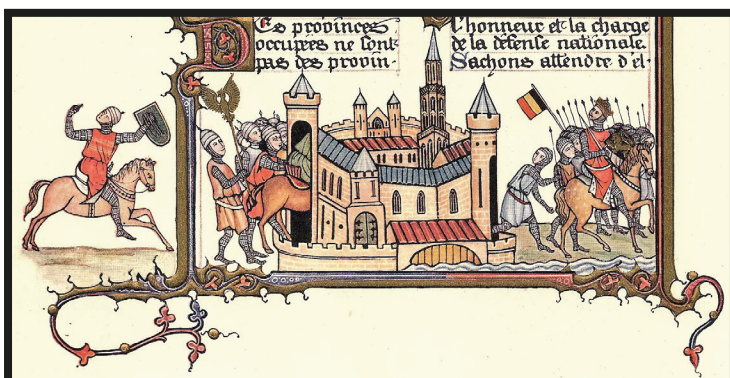 Des provinces
occupées ne sont
pas des provin-
l'honneur et la charge
de la défense nationale.
Sachons attendre d'el-